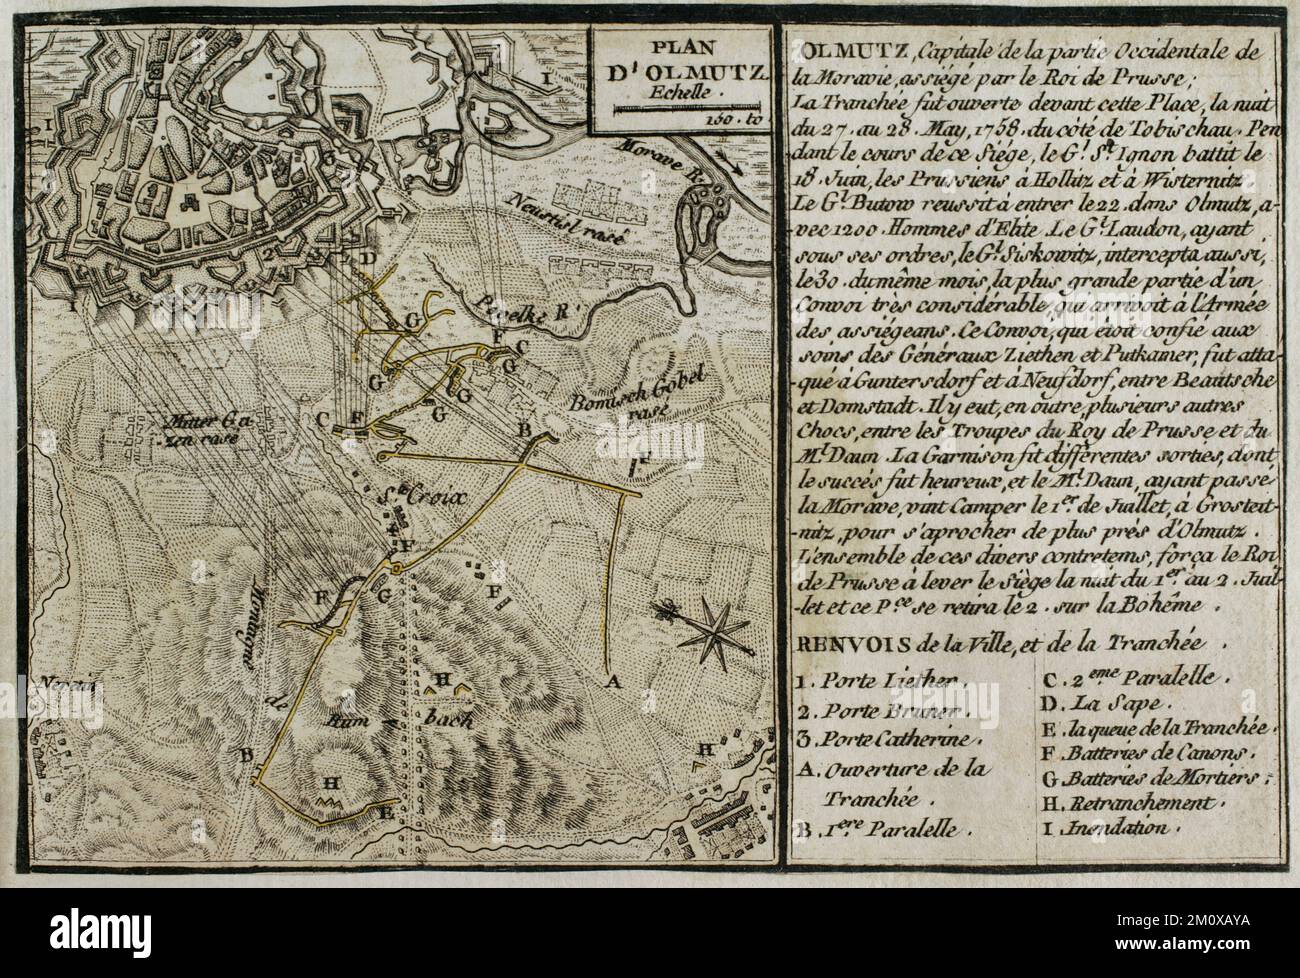 PLAN
D'OLMUTZ
Echelle.
150. to
I
I
I
I
3
2
1
D
Morave R.
Neustist rasé
Povelke R.
G
F
C
G
G
G
G
Bomisch Gobel
rasé
Mitter Ga-
zen rasé
C
F
B
H
Ste Croix
F
G
F
F
Montagne
de
A
H
Rum
bach
Nerein
B
H
H
E
OLMUTZ, Capitale de la partie Occidentale de
la Moravie, assiégé par le Roi de Prusse;
La Tranchée fut ouverte devant cette Place, la nuit
du 27. au 28. May, 1758. du côté de Tobischau. Pen
dant le cours de ce Siége, le Gl. St. Ignon battit le
18. Juin, les Prussiens à Hollitz et à Wisternitz.
Le Gl. Butow reussit à entrer le 22. dans Olmutz, a-
vec 1200. Hommes d'Elite. Le Gl. Laudon, ayant
sous ses ordres, le Gl. Siskowitz, intercepta aussi,
le 30. du même mois, la plus grande partie d'un
Convoi très considérable, qui arrivoit à l'Armée
des assiégeans. Ce Convoi, qui étoit confié aux
soins des Généraux Ziethen et Putkamer, fut atta-
qué à Guntersdorf et à Neufdorf, entre Beautsche
et Domstadt. Il y eut, en outre, plusieurs autres
Chocs, entre les Troupes du Roy de Prusse et du
Ml. Daun. La Garnison fit différentes sorties, dont
le succés fut heureux, et le Ml. Daun, ayant passé
la Morave, vint Camper le 1er. de Juillet, à Grosteit-
-nitz, pour s'aprocher de plus prés d'Olmutz.
L'ensemble de ces divers contretems, força le Roi
de Prusse à lever le Siége la nuit du 1er. au 2. Juil-
-let et ce Pce. se retira le 2. sur la Bohême.
RENVOIS de la Ville, et de la Tranchée.
1. Porte Liether.
2. Porte Bruner.
3. Porte Catherine.
A. Ouverture de la
Tranchée.
B. 1ere Paralelle.
C. 2eme Paralelle.
D. La Sape.
E. la queue de la Tranchée.
F. Batteries de Canons.
G. Batteries de Mortiers.
H. Retranchement.
I. Inondation.
alamy
Image ID: 2M0XAYA
www.alamy.com